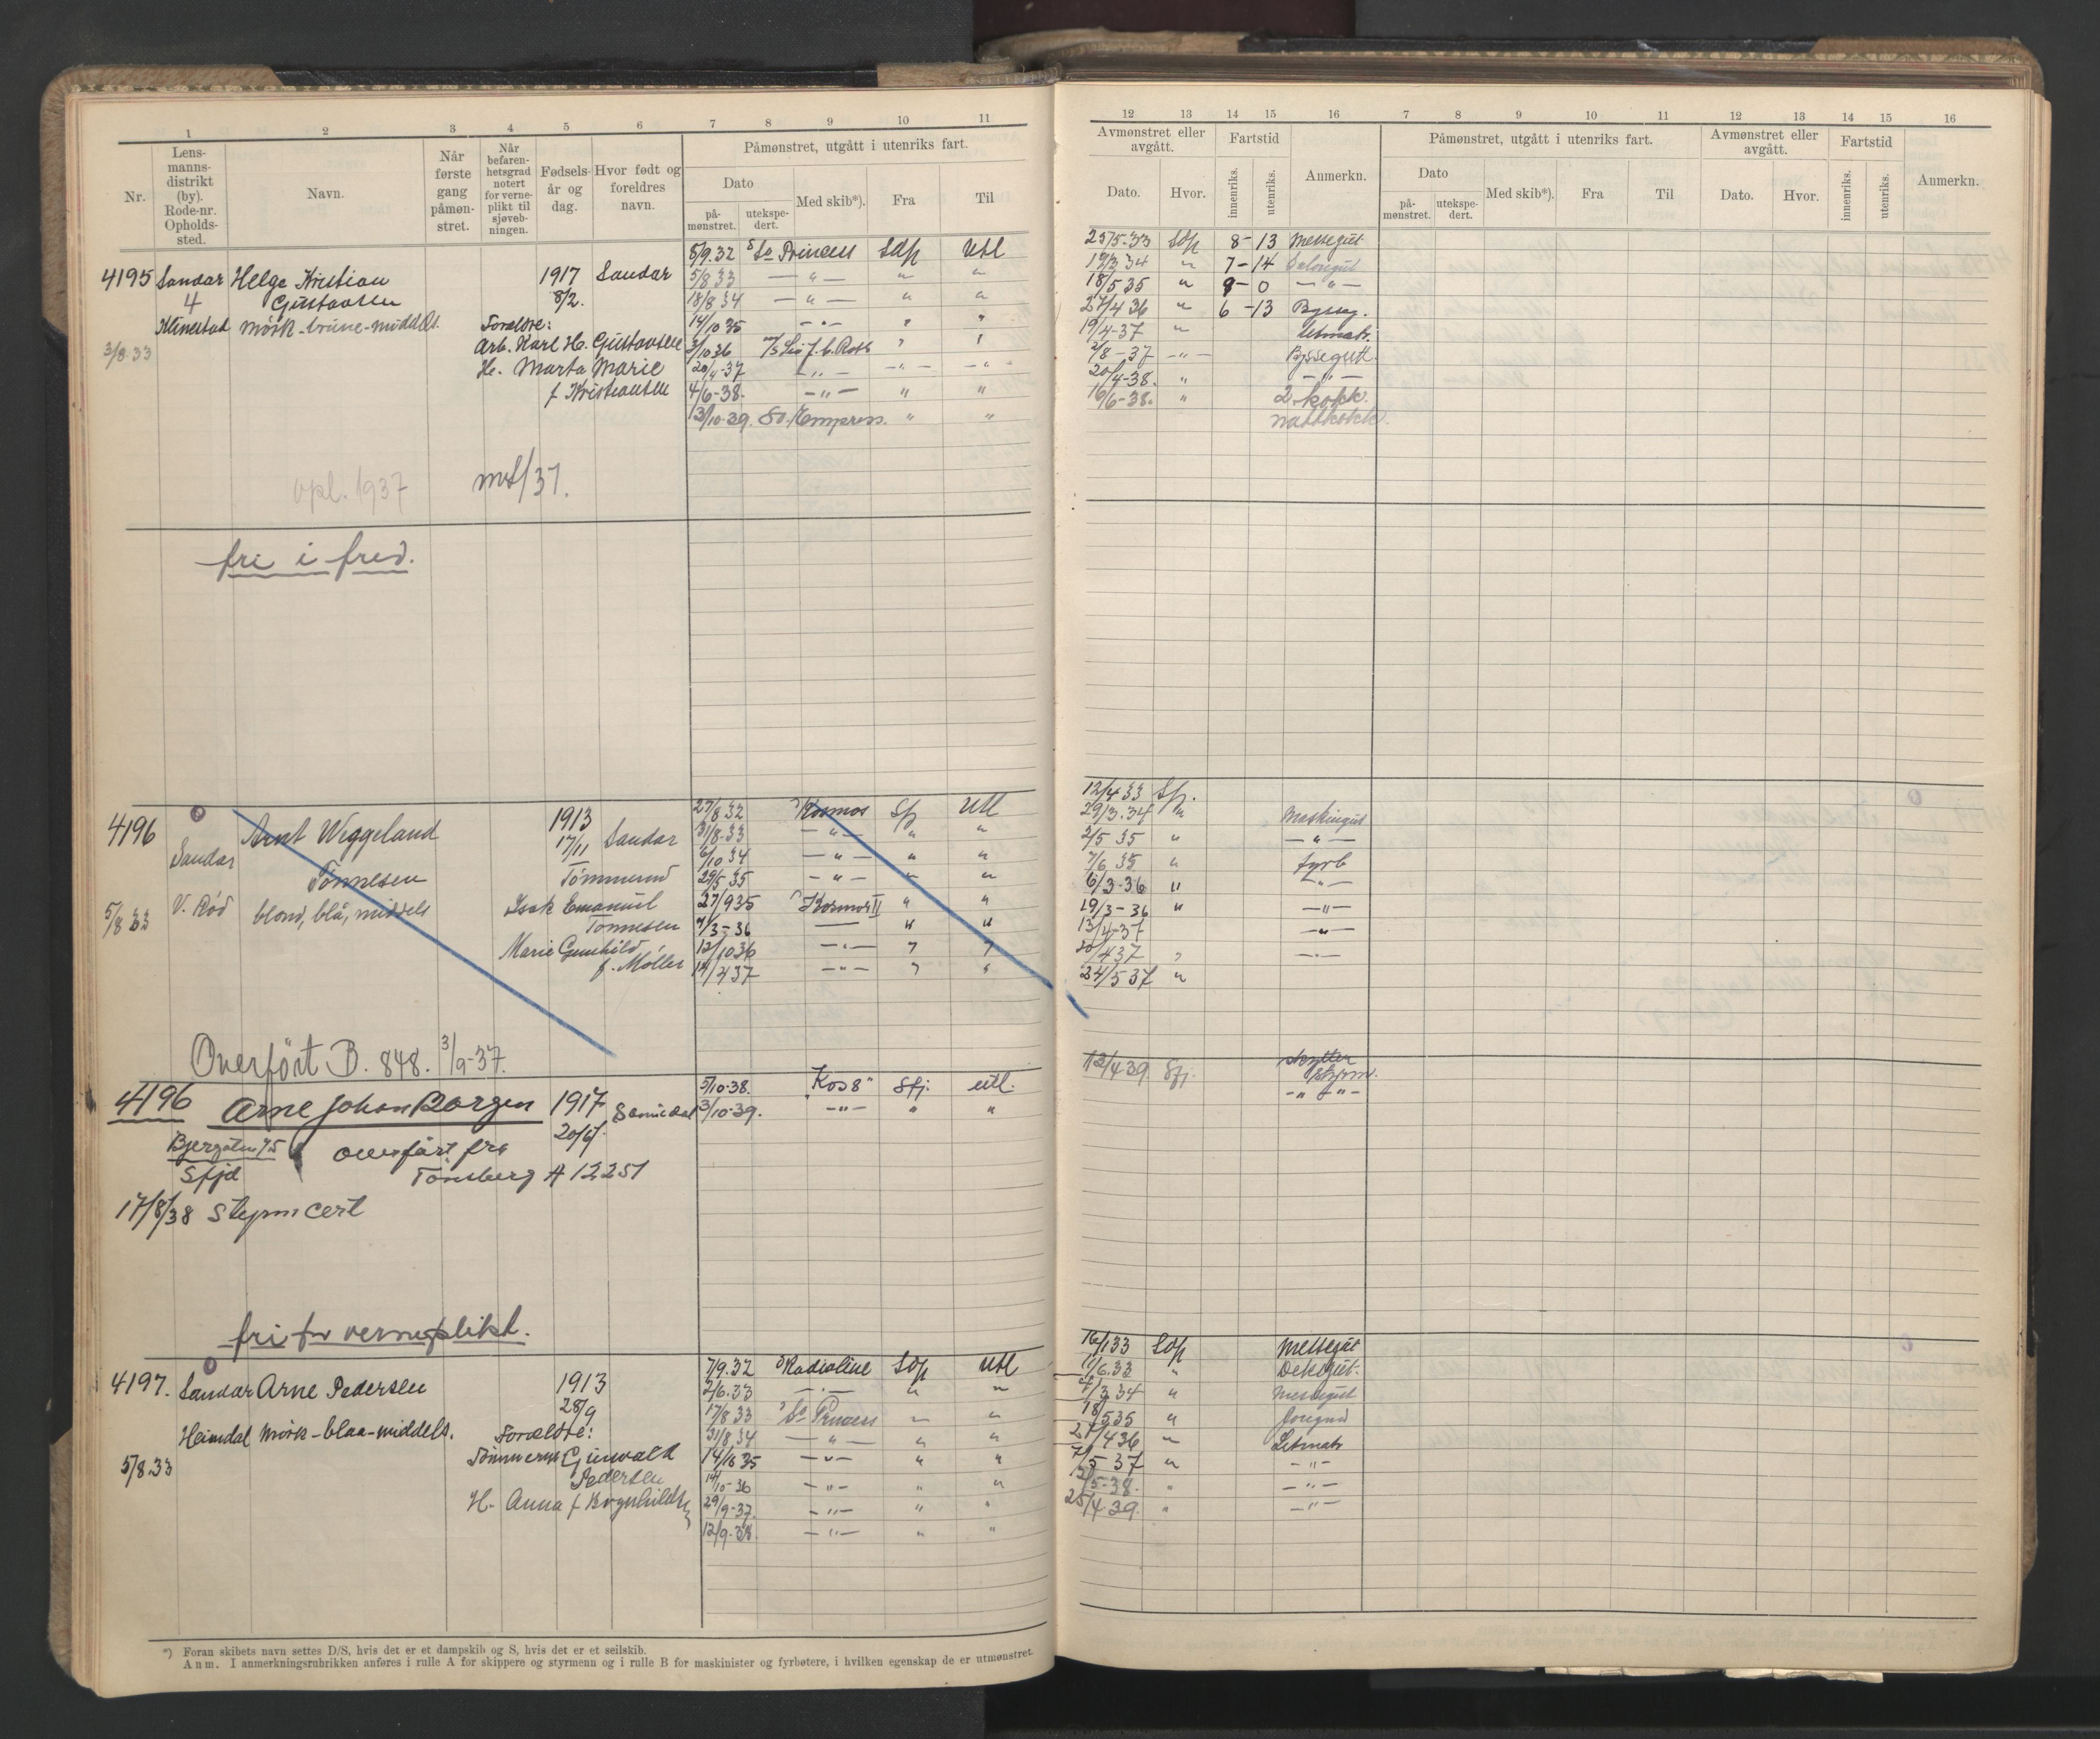 1 2 3 4 5 6 7 8 9 10 11
Nr.
Lens-
manns-
distrikt
(by).
Rode-nr.
Opholds-
sted.
Navn.
Når
første
gang
påmøn-
stret.
Når
befaren-
hetsgrad
notert
for verne-
plikt til
sjøveb-
ningen.
Fødsels-
år og
dag.
Hvor født og
foreldres
navn.
Påmønstret, utgått i utenriks fart.
Dato
på-
mønstret.
utekspe-
dert.
Med skib*).
Fra
Til
4195 Sandar Helge Kristian 1917 Sandar
4 Gustavsen 8/2.
Klinestad mörk-brune-middels. Foreldre:
3/8.33
Arb. Karl H. Gustavsen
H. Marta Marie
f Kristiansen
5/9.32 So Princess Sdfj Utl
5/8 33 — " — " "
18/8 34 — " — " "
14/10 35 — " — " "
3/10 36 Leo J. C. Roth " "
20/4-37 — " — — " — — " —
4/6-38. — " — " "
13/10-39. So. Empress. " "
opl. 1937
fri i fred.
4196 Arnt Wiggeland 1913
Sandar 17/11 Sandar
Tönnesen Tömmermd
V. Rød blond, blå, middels Isak Emanuel
5/8 33 Tönnesen
Marie Gunhild
f. Møller
27/8 32 Kosmos Sfj Utl
31/8.33 — " — " "
6/10 34 — " — " "
29/5 35 — " — " "
27/9 35 Kosmos II " "
7/3-36 — " "
12/10 36 — " — " "
14/4 37 — " — " "
Overfört B. 848. 3/9-37.
4196 Arne Johan Borgen 1917
20/6
Bjergaten 75 overfört fra
Sfjd Tönsberg A 12251
17/8/38 Styrm cert
5/10-38. "Kos 8" Sfj. utl.
3/10-39. — " — " "
fri for verneplikt.
4197. Sandar Arne Pedersen 1913
28/9
Heimdal mörk-blaa-middels. Foreldre:
5/8 33 Tömmerm Gunvald
Pedersen
H. Anna f
7/9.32 Radioline Sdfj Utl
2/6.33 — " — " "
17/8 33 So Princess " "
31/8 34 — " — " "
14/10 35 — " — " "
14/10-36 — " — " "
29/9-37. — " — " "
12/9-38. — " — " "
*) Foran skibets navn settes D/S, hvis det er et dampskib og S, hvis det er et seilskib.
Anm. I anmerkningsrubrikken anføres i rulle A for skippere og styrmenn og i rulle B for maskinister og fyrbøtere, i hvilken egenskap de er utmønstret.
12 13 14 15 16 7 8 9 10 11 12 13 14 15 16
Avmønstret eller
avgått.
Dato.
Hvor.
Fartstid
innenriks.
utenriks.
Anmerkn.
Påmønstret, utgått i utenriks fart.
Dato
på-
mønstret.
utekspe-
dert.
Med skib*).
Fra
Til
Avmønstret eller
avgått.
Dato.
Hvor.
Fartstid
innenriks.
utenriks.
Anmerkn.
25/5.33 Sdfj 8-13 Messegut
19/3 34 " 7-14 Salongut
18/5 35 " 9-0 — " —
27/4 36 " 6-13 Bysseg.
19/4-37 " Letmatr.
2/8-37 — " — Byssegutt.
20/4-38. " — " —
16/6-38. " 2. kokk.
nattkokk.
12/4 33 Sfj.
29/3.34 " Maskingut
2/5 35 " — " —
7/6 35 " fyrb
6/3-36 " — " —
19/3-36 " — " —
13/4-37 — " —
20/4 37 " — " —
24/5 37 "
12/4 39 Sfj. skytter
styrm.
— " — " —
16/1 33 Sdfj Messegut
11/6.33 " Deksgut.
4/3 34 " Messegut
18/5 35 " Jongmd
27/4 36 " Letmatr
7/5 37 " — " —
13/5-38. " — " —
25/4 39. " — " —